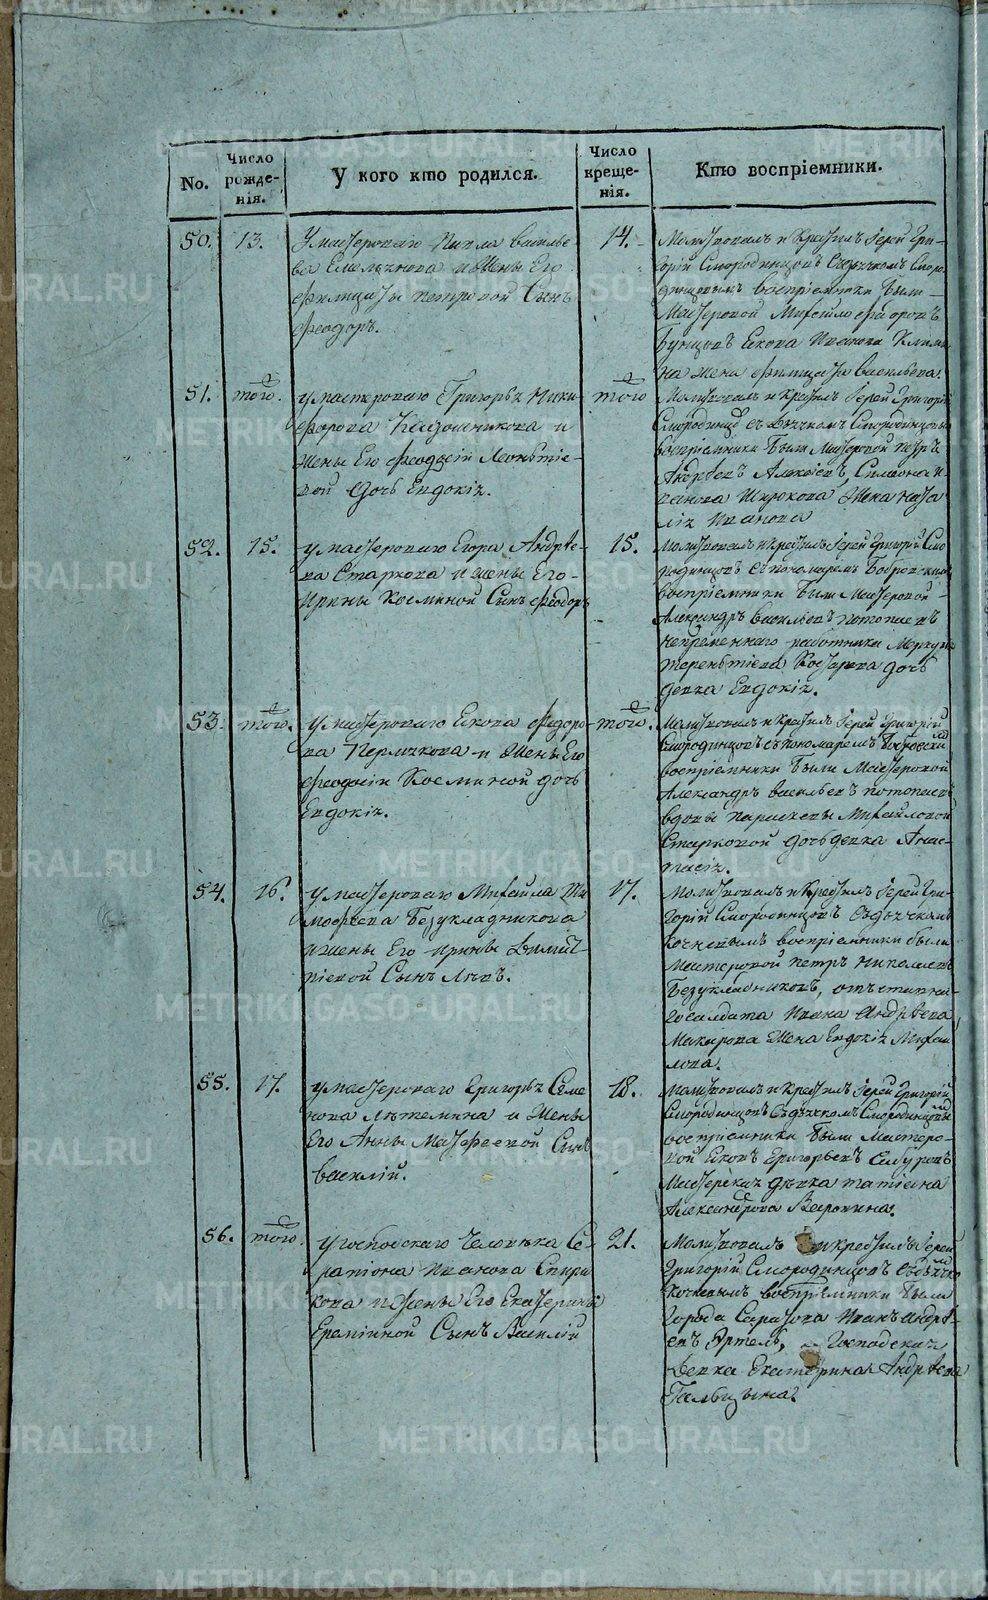 METRIKI.GASO-URAL.RU
No.
Число рожде-
нія.
У кого кто родился.
Число креще-
нія.
Кто воспріемники.
50.
13.
У мастероваго Павла Василье-
ва Емельянова и жены Его
Филицаты Петровой Сынъ
Феодоръ.
14.
Молитвовалъ и Крестилъ Іерей Гри-
горій Смородинцовъ съ дьячкомъ Сморо-
динцовымъ воспріемники были
Мастеровой Михайло
Якова Иванова
жена Филицата Васильева.
51.
того.
у мастероваго Григорья Ники-
форова и
жены Его Феодосіи Леонтіе-
вой дочь Евдокія.
того
Молитвовалъ и Крестилъ Іерей Григорій
Смородинцовъ съ дьячкомъ Смородинцовымъ
воспріемники были Мастеровой Петръ
Андреевъ Алексѣевъ,
жена Ната-
лія Иванова
52.
15.
у мастероваго Егора Андрѣе-
ва Старкова и жены Его
Ирины Косминой Сынъ Феодоръ
15.
Молитвовалъ и Крестилъ Іерей Григорій Смо-
родинцовъ съ пономаремъ Бобровскимъ
воспріемники были Мастеровой
Александръ Васильевъ Потопаевъ
непременнаго работника Меркурья
Терентіева Костарева дочь
девка Евдокія.
53.
того.
у мастероваго Якова Федоро-
ва Пермякова и жены Его
Феодосіи Косминой дочь
Евдокія.
того.
Молитвовалъ и Крестилъ Іерей Григорій
Смородинцовъ съ пономаремъ Бобровскимъ
воспріемники были Мастеровой
Александръ Васильевъ Потопаевъ
вдовы Параскевы Михайловой
Старковой дочь девка Анас-
тасія.
54.
16.
у мастероваго Михаила Ти-
мофеева Безукладникова
и жены Его Ирины Димит-
ріевой Сынъ Левъ.
17.
Молитвовалъ и Крестилъ Іерей Гри-
горій Смородинцовъ съ дьячкамъ
Кочневымъ воспріемники были
Мастеровой Петръ Николаевъ
Безукладниковъ, отъставна-
го салдата Ивана Андрѣева
Макарова жена Евдокія Михай-
лова.
55.
17.
у мастероваго Григорья Семе-
нова Лѣтемина и жены
Его Анны Матфеевой Сынъ
Василій.
18.
Молитвовалъ и Крестилъ Іерей Григорій
Смородинцовъ съ дьячкомъ Смородинцовымъ
воспріемники были Мастеро-
вой Яковъ Григорьевъ
Мастерская дѣвка Татіана
Александрова
56.
того.
у господскаго человѣка Се-
рапіона Иванова Спири-
кова и жены Его Екатерины
Сынъ Василій
21.
Молитвовалъ и крестилъ Іерей
Григорій Смородинцовъ съ дьячко
Кочневымъ воспріемники были
города Саратова Иванъ Андрѣ-
евъ Артель, Господская
Девка Екатерина Андрѣева